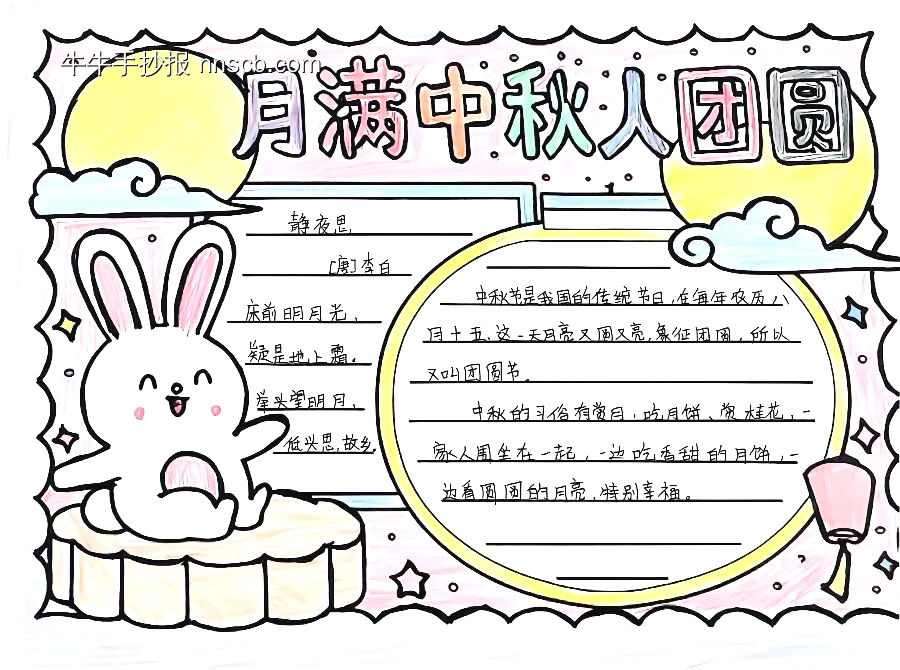 牛牛手抄报 nnscb.com
月满中秋人团圆
静夜思
[唐]李白
床前明月光，
疑是地上霜。
举头望明月，
低头思故乡。
中秋节是我国的传统节日，在每年农历八
月十五，这一天月亮又圆又亮，象征团圆，所以
又叫团圆节。
中秋的习俗有赏月，吃月饼、赏桂花，一
家人围坐在一起，一边吃香甜的月饼，一
边看圆圆的月亮，特别幸福。